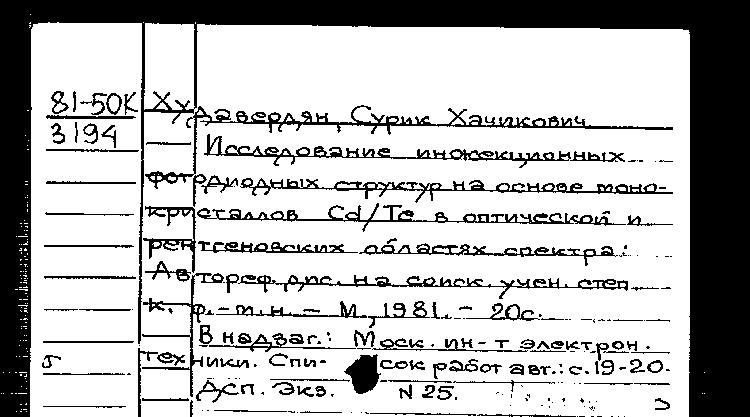 81-50К Худавердян, Сурик Хачикович
3194 Исследование инжекционных
фотодиодных структур на основе моно-
кристаллов Cd/Te в оптической и
рентгеновских областях спектра:
Автореф. дис. на соиск. учен. степ.
к. ф.-т.н. - М., 1981. - 20с.
В надзаг.: Моск. ин-т электрон.
техники. Спи- сок работ авт.: с. 19-20.
ДСП. Экз. N 25.